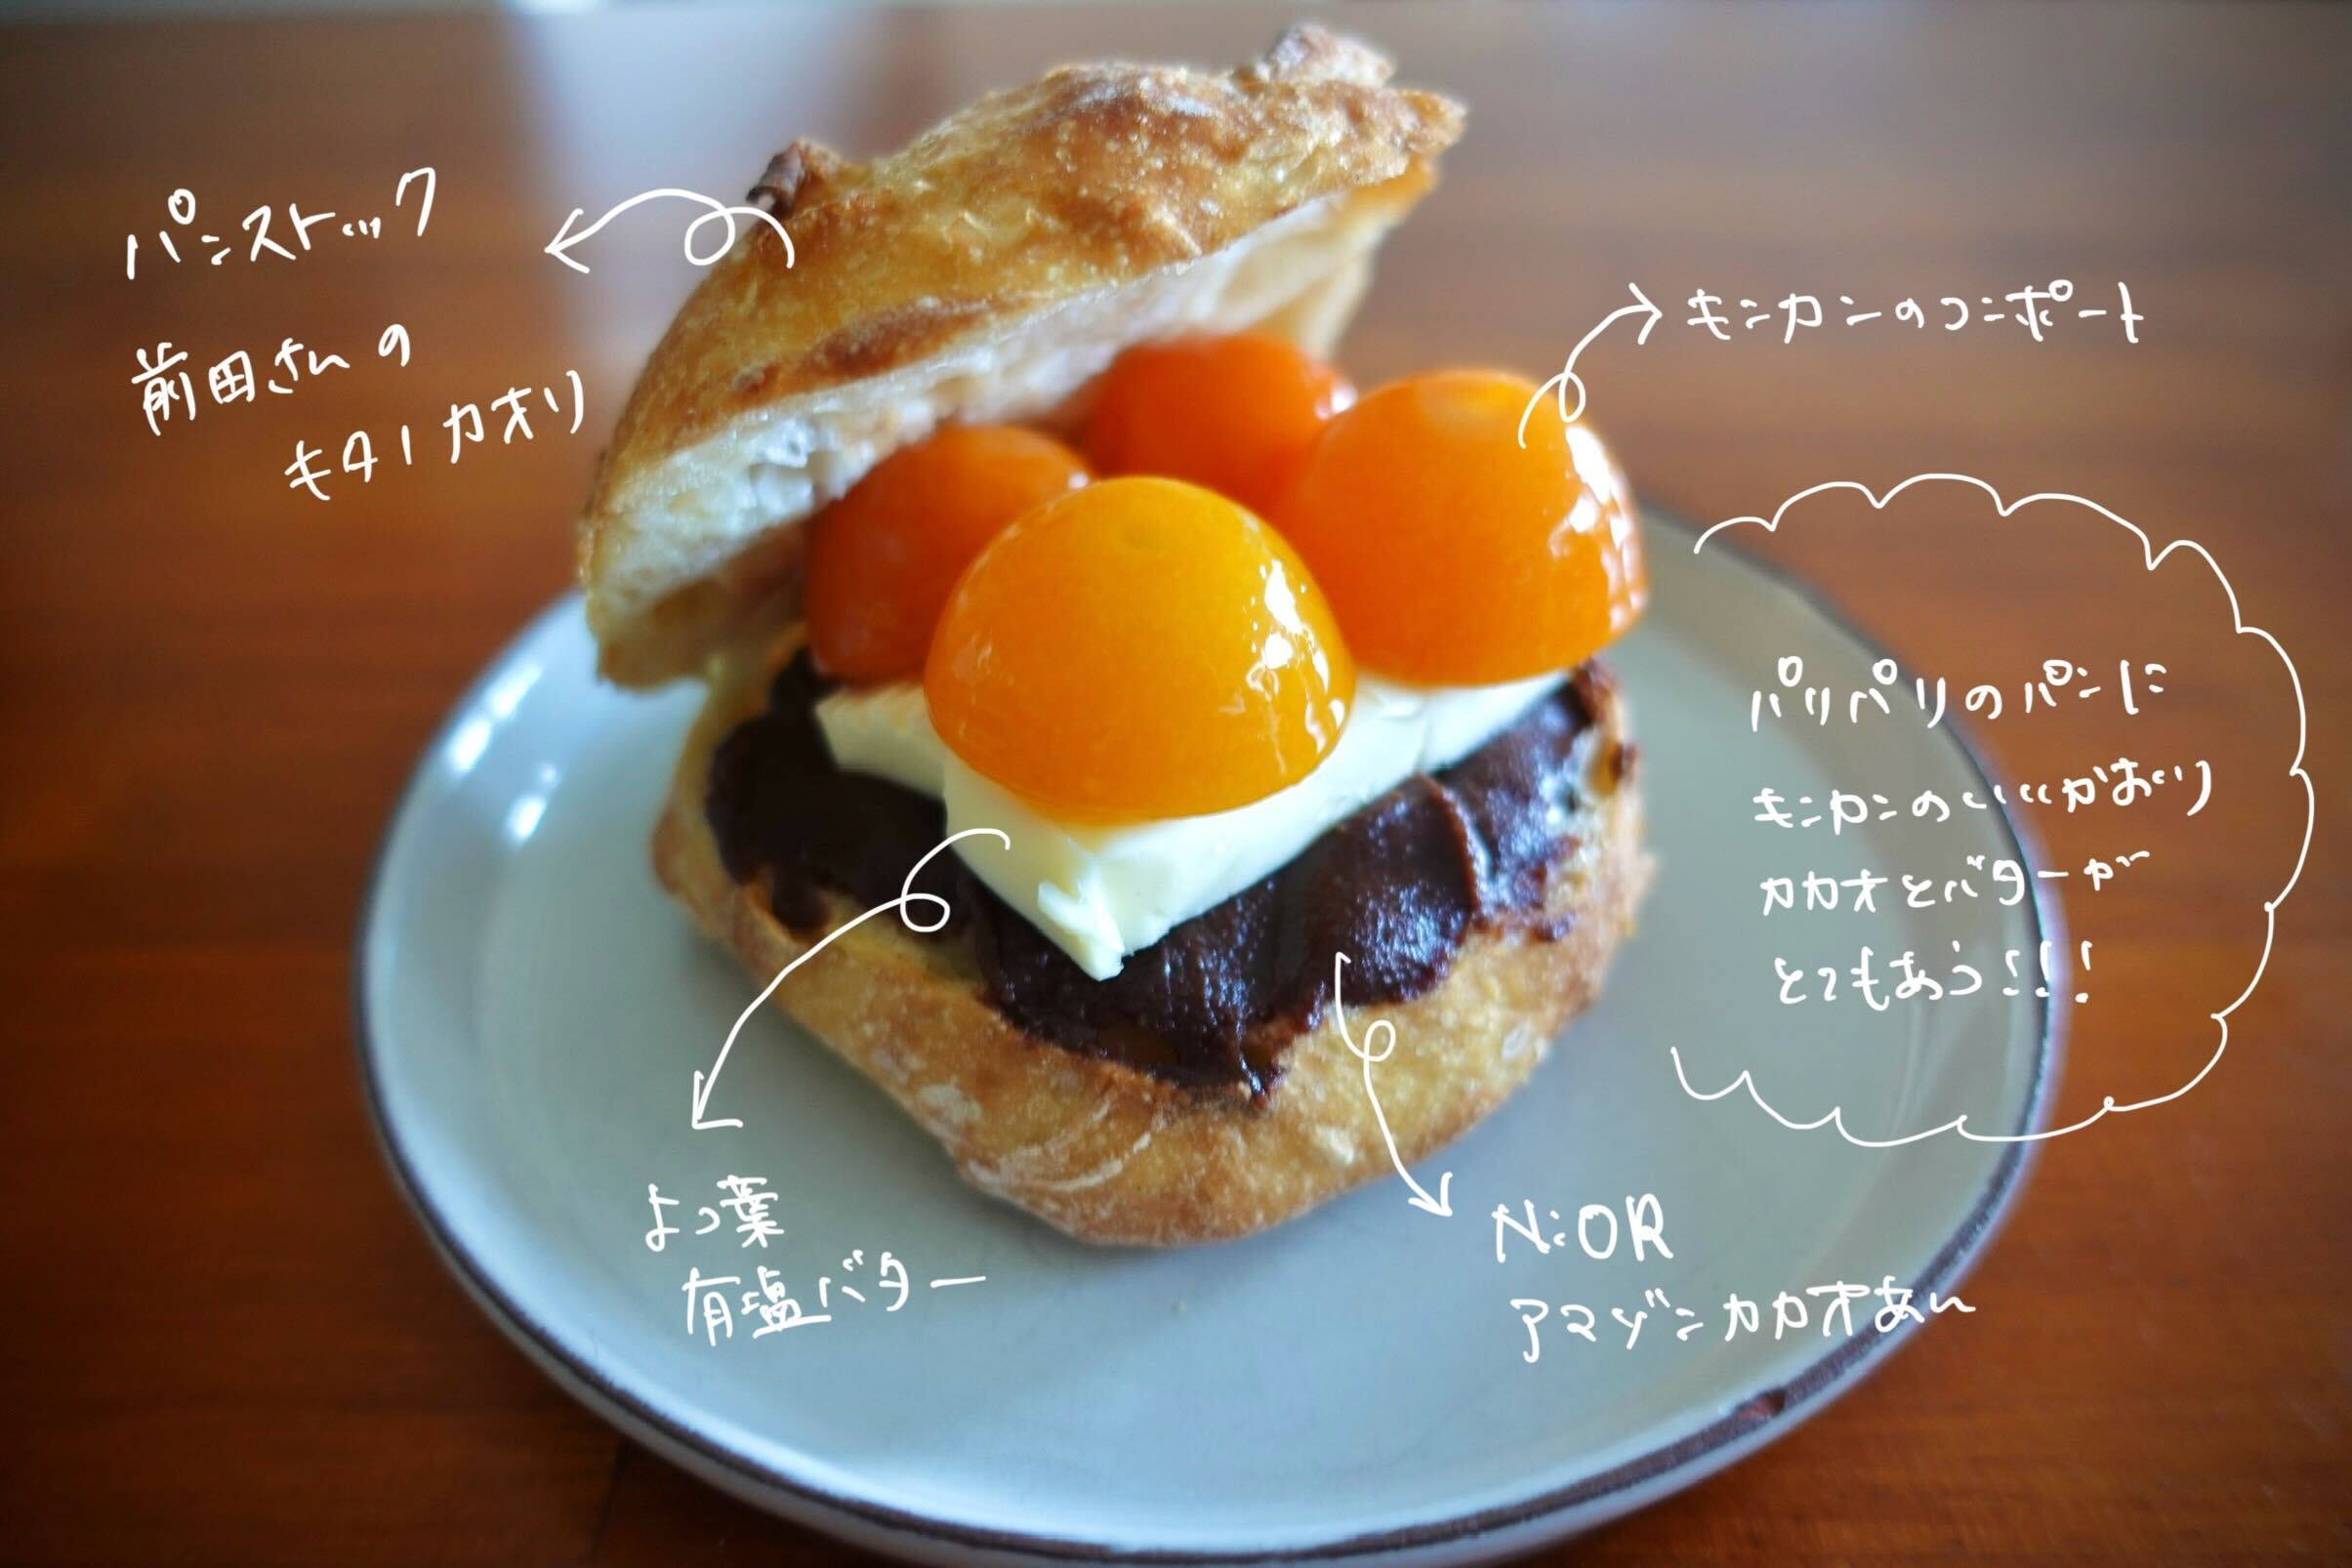 パンストック
前田さんの
キタノカオリ
キンカンのコンポート
パリパリのパンに
キンカンのいいかおり
カカオとバターが
とてもあう!!!
よつ葉
有塩バター
N:OR
アマゾンカカオあん